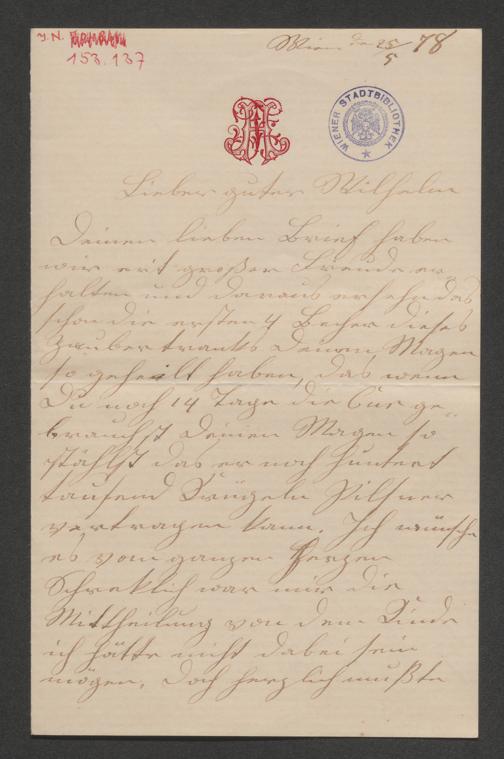 J.N.
153.137
Wien den 25/5 78
WIENER STADTBIBLIOTHEK
Lieber guter Wilhelm
Deinen lieben Brief haben
wir mit großer Freude er-
halten und daraus ersehn das
schon die ersten 4 Becher dieses
Zaubertranks deinen Magen
so geheilt haben, das wenn
Du noch 14 Tage die Cur ge-
brauchst deinen Magen so
stählst das er noch hundert
tausend Krügeln Pilsner
vertragen kann. Ich wünsche
es vom ganzen Herzen
Schreklich war mir die
Mittheilung von dem Kinde
ich hätte nicht dabei sein
mögen, doch herzlich mußte